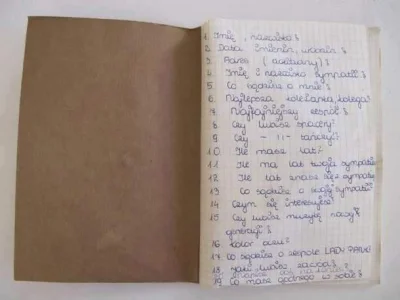 1. Imię, nazwisko?
2. Data imienin, urodzin?
3. Adres (aktualny)
4. Imię i nazwisko sympatii?
5. Co sądzisz o mnie?
6. Najlepsza koleżanka, kolega?
7. Najfajniejszy zespół?
8. Czy lubisz spacery?
9. Czy - 11 - tańczyć?
10. Ile masz lat?
11. Ile ma lat twoja sympatia
12. Ile lat znasz się z sympatią
13. Co sądzisz o swojej sympatii?
14. Czym się interesujesz?
15. Czy lubisz muzykę naszej
generacji?
16. Kolor oczu?
17. Co sądzisz o zespole LADY PANK?
18. Jaki lubisz
19. Co masz w sobie?